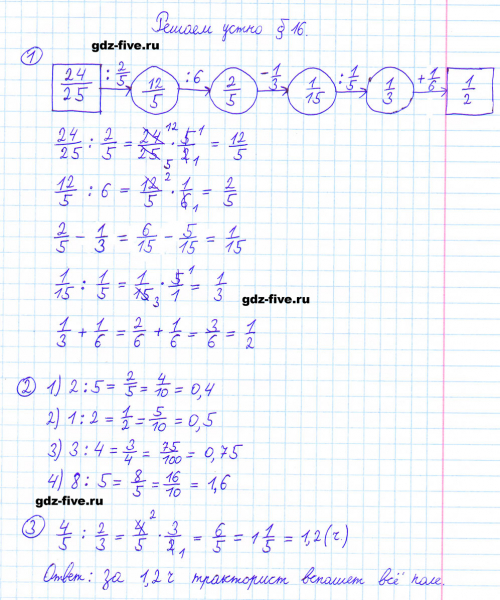 Решаем устно § 16.
gdz-five.ru
① 24/25 : 2/5 → 12/5 : 6 → 2/5 - 1/3 → 1/15 : 1/5 → 1/3 + 1/6 → 1/2
24/25 : 2/5 = 24/25 · 5/2 = 12/5
12/5 : 6 = 12/5 · 1/6 = 2/5
2/5 - 1/3 = 6/15 - 5/15 = 1/15
1/15 : 1/5 = 1/15 · 5/1 = 1/3
gdz-five.ru
1/3 + 1/6 = 2/6 + 1/6 = 3/6 = 1/2
② 1) 2 : 5 = 2/5 = 4/10 = 0,4
2) 1 : 2 = 1/2 = 5/10 = 0,5
3) 3 : 4 = 3/4 = 75/100 = 0,75
4) 8 : 5 = 8/5 = 16/10 = 1,6
gdz-five.ru
③ 4/5 : 2/3 = 4/5 · 3/2 = 6/5 = 1 1/5 = 1,2 (ч)
Ответ: за 1,2 ч тракторист вспашет всё поле.